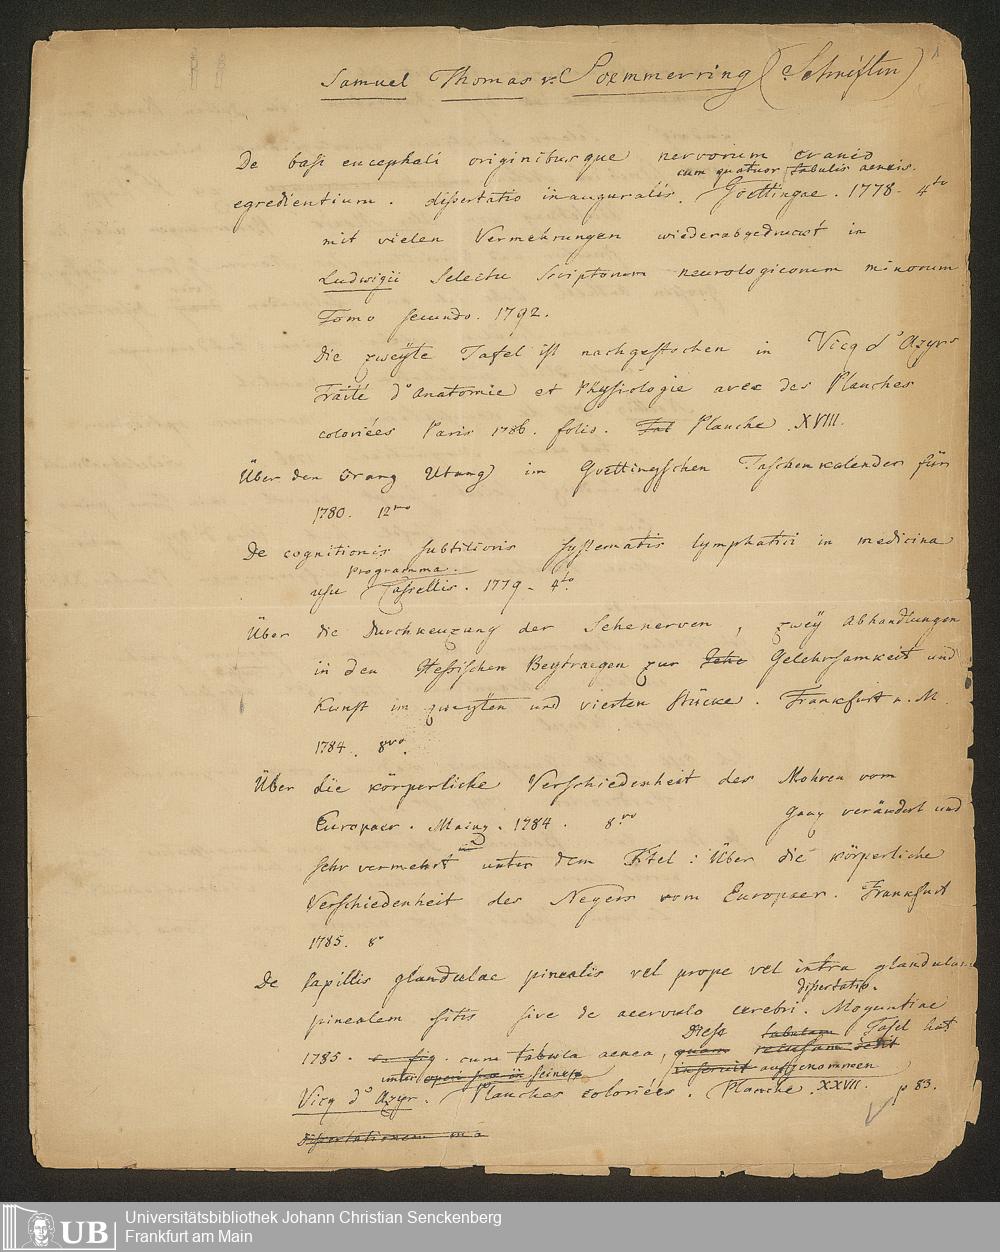 Samuel Thomas v. Soemmerring (Schriften) 1
De basi encephali originibusque nervorum cranio
cum quatuor tabulis aeneis.
egredientium. dissertatio inauguralis. Goettingae. 1778. 4to
mit vielen Vermehrungen wiederabgedruckt in
Ludwigii Selectu Scriptorum neurologicorum minorum
Tomo secundo. 1792.
Die zweyte Tafel ist nachgestochen in Vicq d'Azyrs
Traité d'Anatomie et Physiologie avec des Planches
coloriées Paris 1786. folio. Taf Planche. XVIII.
Über den Orang Utang im Goettingschen Taschenkalender für
1780. 12mo
De cognitionis subtilioris systematis lymphatici in medicina
Programma.
usu Cassellis. 1779. 4to.
Über die Durchkreuzung der Sehenerven, zwey Abhandlungen
in den Hessischen Beytraegen zur Gelehrsamkeit und
Kunst im zweyten und vierten Stücke. Frankfurt a. M.
1784. 8vo.
Über die körperliche Verschiedenheit des Mohren vom
Europaer. Mainz. 1784. 8vo Ganz verändert und
sehr vermehrt unter dem Titel: Über die körperliche
Verschiedenheit des Negers vom Europaer. Frankfurt
1785. 8o
De lapillis glandulae pinealis vel prope vel intra glandulam
dissertatio.
pinealem sitis sive de acervulo cerebri. Moguntiae
Diese tabulam Tafel hat
1785. c. fig. cum tabula aenea, quam recusam dedit
unter seinen inseruit aufgenommen
Vicq d'Azyr. Planches coloriées. Planche. XXVII. p 83.
Dissertationem
UB
Universitätsbibliothek Johann Christian Senckenberg
Frankfurt am Main